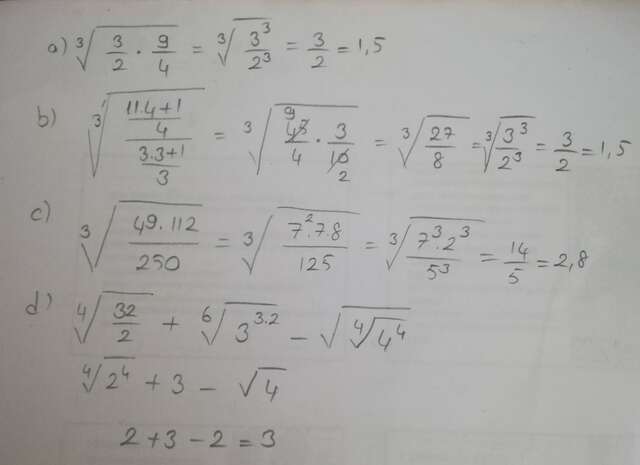 a) ∛(3/2 · 9/4) = ∛(3³/2³) = 3/2 = 1,5
b) ∛(((11.4+1)/4)/((3.3+1)/3)) = ∛(45/4 · 3/10) 9 2 = ∛(27/8) = ∛(3³/2³) = 3/2 = 1,5
c) ∛((49.112)/250) = ∛((7².7.8)/125) = ∛((7³.2³)/5³) = 14/5 = 2,8
d) ∜(32/2) + ⁶√(3^(3.2)) − √(∜(4⁴))
∜(2⁴) + 3 − √4
2 + 3 − 2 = 3